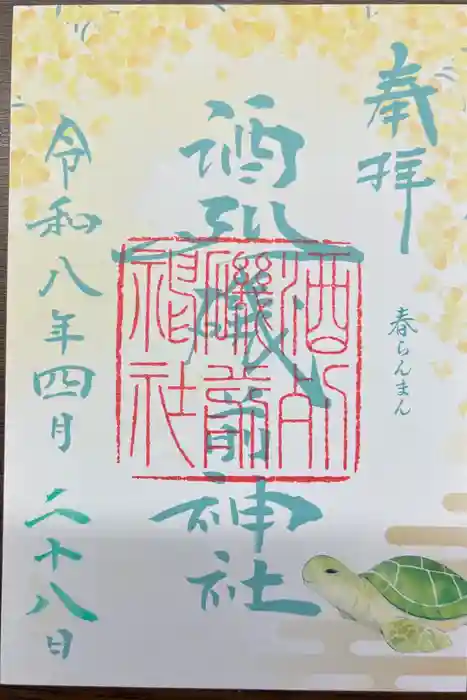 奉拝
春らんまん
酒列磯前神社
酒列
磯前
神社
令和八年四月二十八日